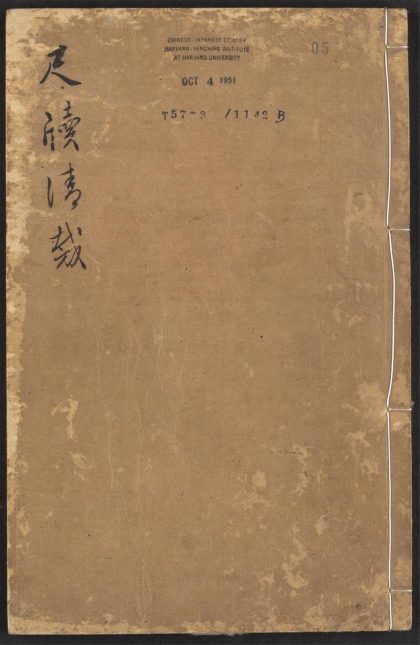 尺牘清裁
CHINESE - JAPANESE LIBRARY
HARVARD - YENCHING INSTITUTE
AT HARVARD UNIVERSITY
OCT 4 1951
05